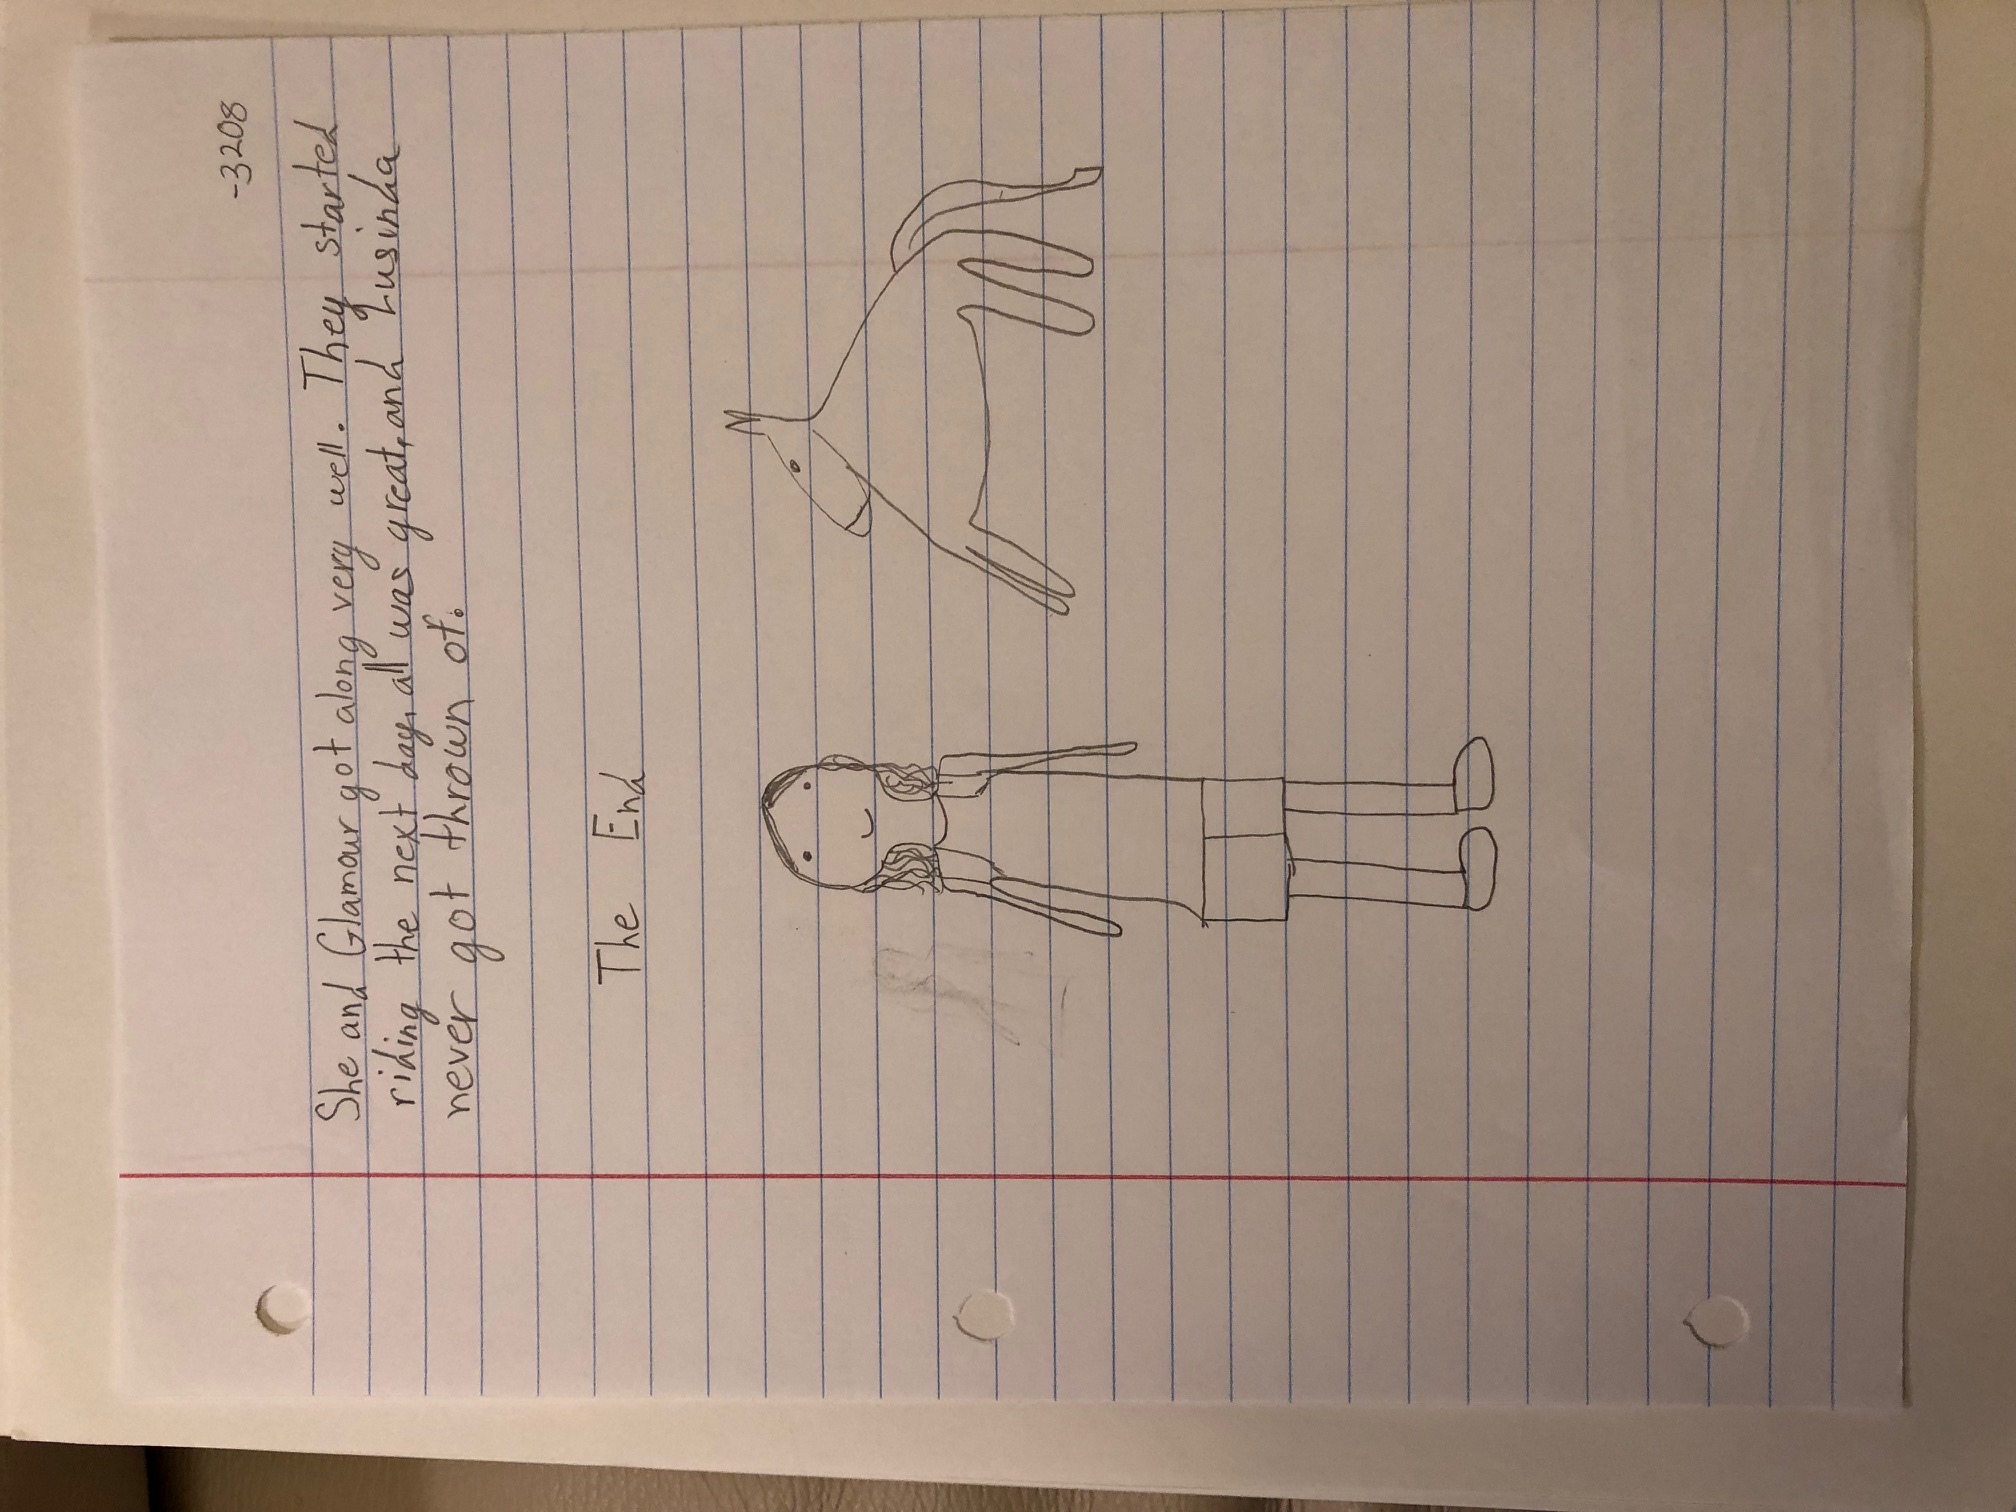 -3208
She and Glamour got along very well. They started
riding the next day, all was great, and Lusinda
never got thrown of.
The End